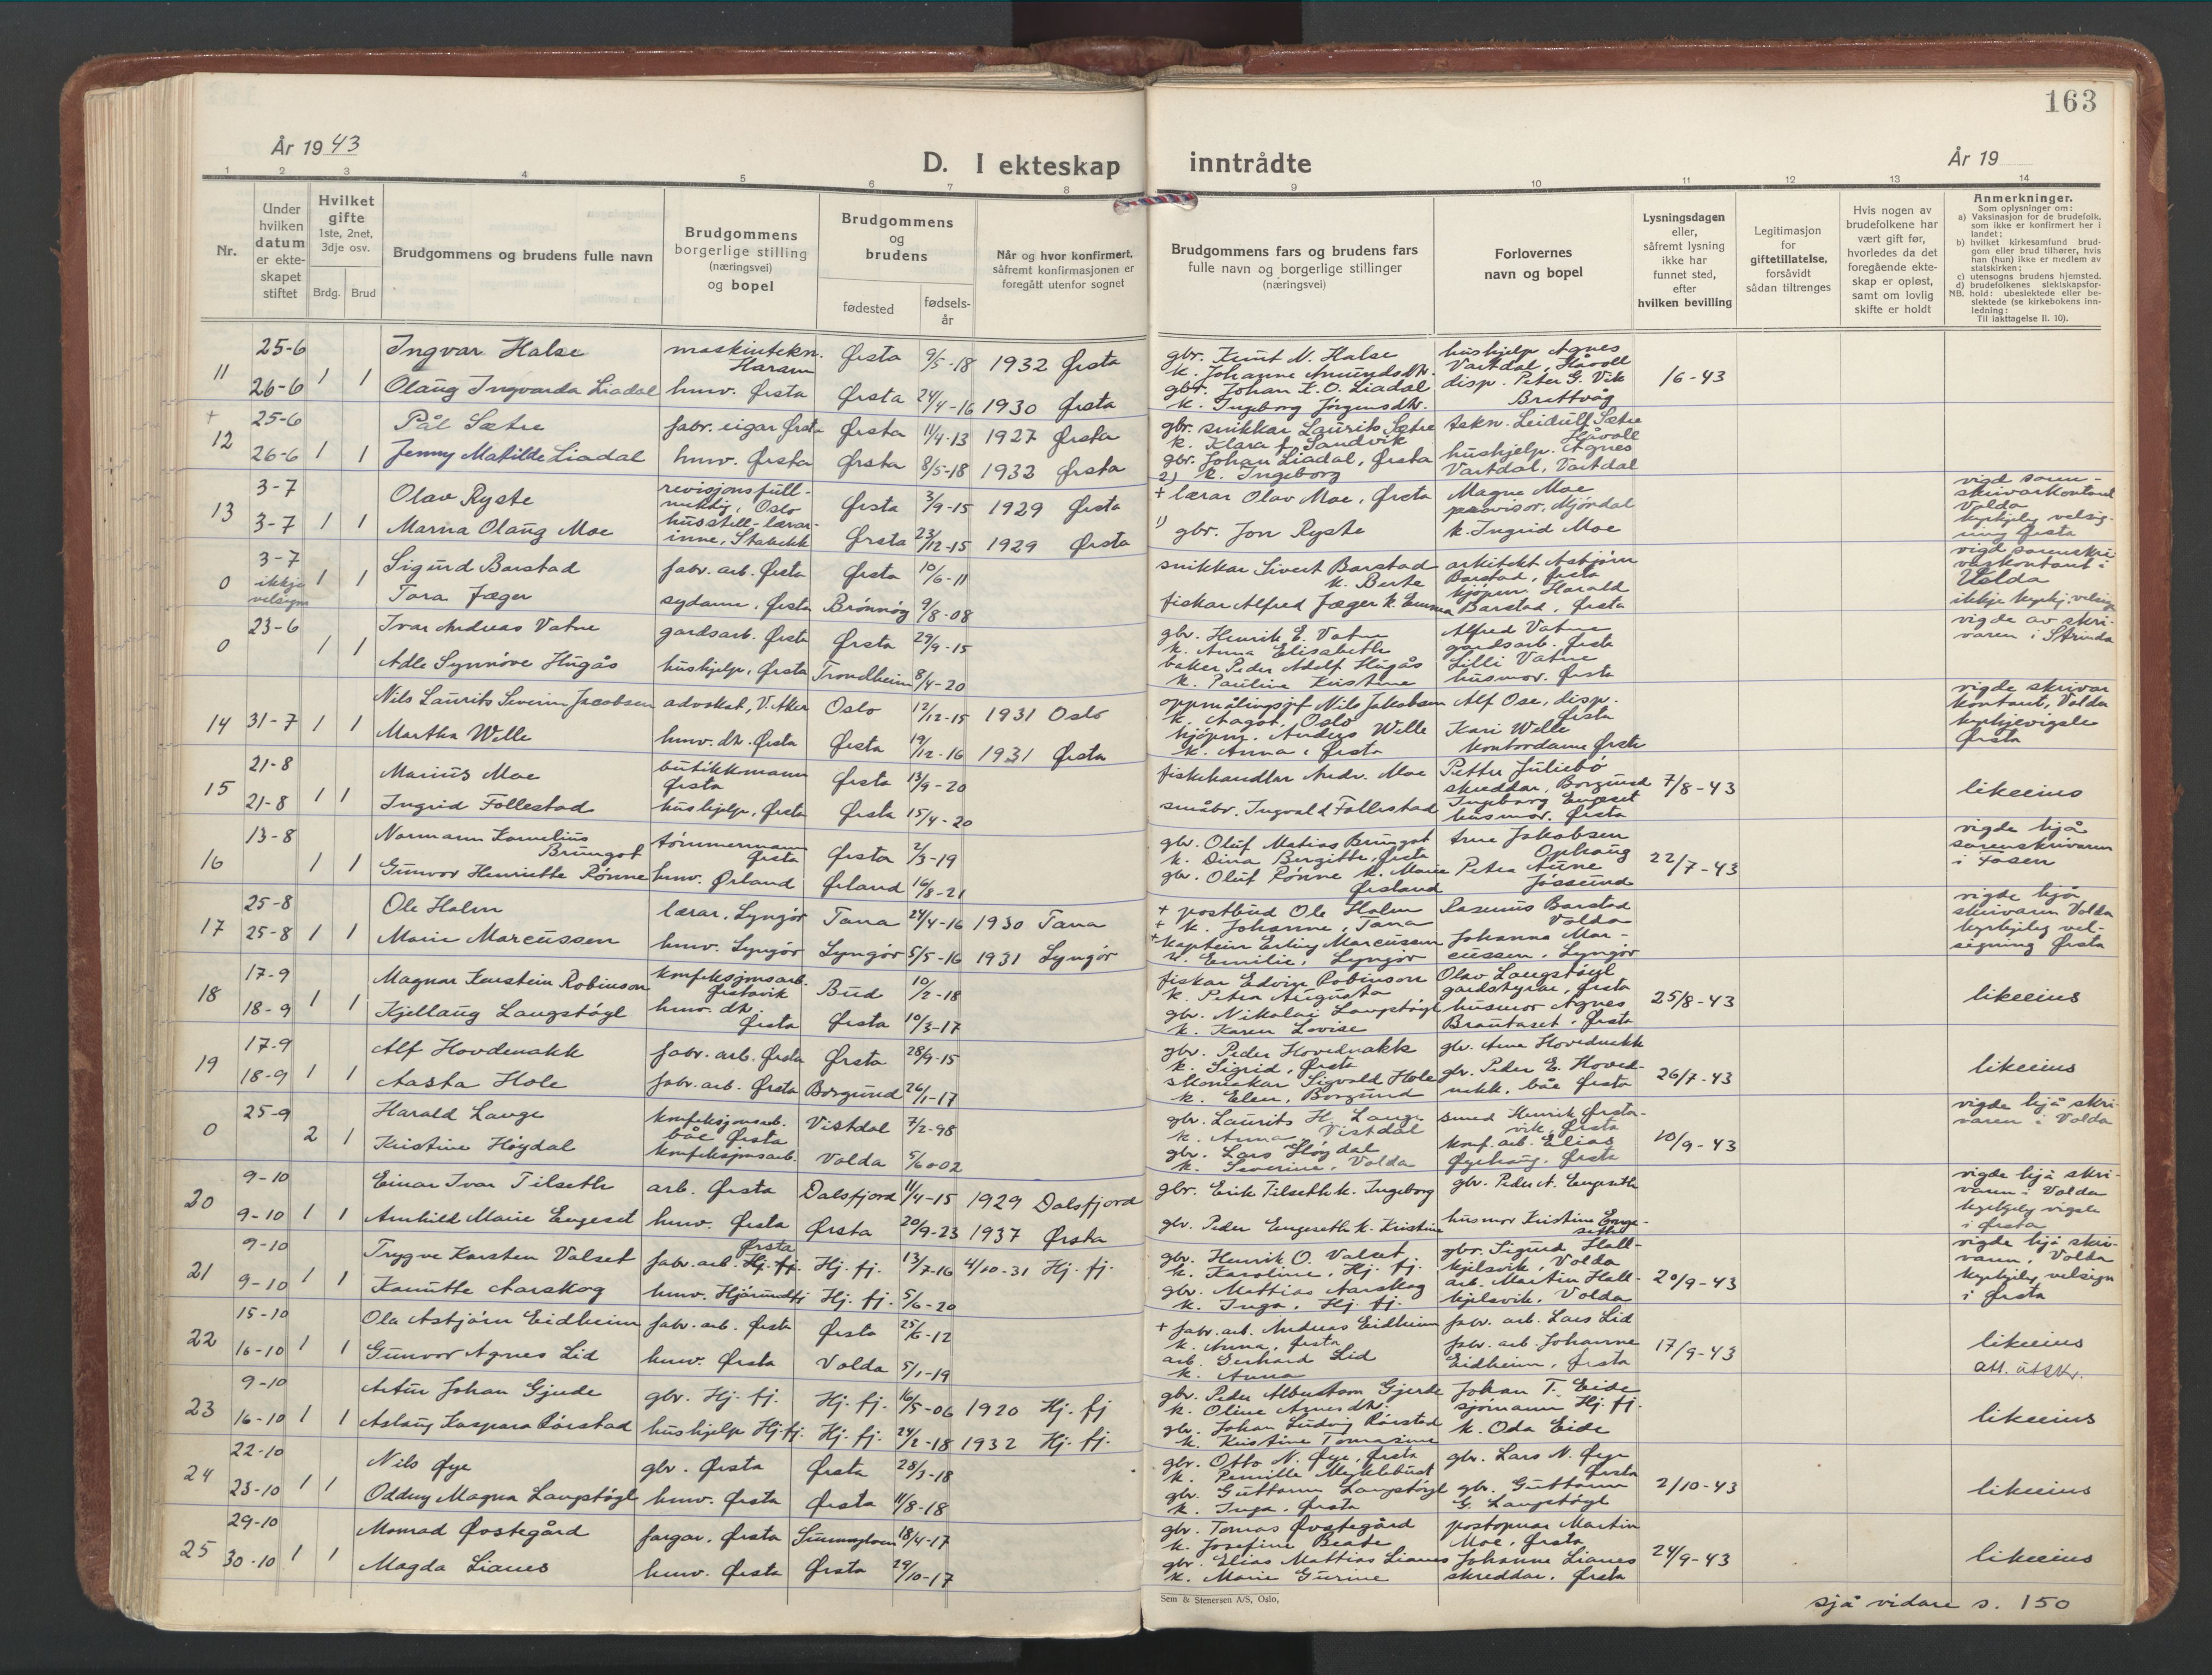 163
År 1943
D. I ekteskap inntrådte
År 19
1 2 3 4 5 6 7 8 9 10 11 12 13 14
Nr.
Under hvilken datum er ekte-skapet stiftet
Hvilket gifte 1ste, 2net, 3dje osv.
Brdg. Brud
Brudgommens og brudens fulle navn
Brudgommens borgerlige stilling (næringsvei) og bopel
Brudgommens og brudens
fødested
fødsels-år
Når og hvor konfirmert, såfremt konfirmasjonen er foregått utenfor sognet
Brudgommens fars og brudens fars fulle navn og borgerlige stillinger (næringsvei)
Forlovernes navn og bopel
Lysningsdagen eller, såfremt lysning ikke har funnet sted, efter hvilken bevilling
Legitimasjon for giftetillatelse, forsåvidt sådan tiltrenges
Hvis nogen av brudefolkene har vært gift før, hvorledes da det foregående ekte-skap er opløst, samt om lovlig skifte er holdt
Anmerkninger.
Som oplysninger om:
a) Vaksinasjon for de brudefolk, som ikke er konfirmert her i landet;
b) hvilket kirkesamfund brud-gom eller brud tilhører, hvis han (hun) ikke er medlem av statskirken;
c) utensogns brudens hjemsted.
d) brudefolkenes slektskapsfor-hold: ubeslektede eller be-slektede (se kirkebokens inn-ledning:
NB. Til iakttagelse II. 10).
11 25-6 1 1 Ingvar Halse maskintekn. Haram Ørsta 9/5-18 1932 Ørsta gbr. Knut N. Halse k. Johanne Amundsdtr. hushjelp Agnes Vartdal, Håvoll 1/6-43
26-6 Olaug Ingvarda Liadal hmv. Ørsta Ørsta 24/4-16 1930 Ørsta gbr. Johan K.O. Liadal k. Ingeborg Jörgensdtr. disp. Peter G. Vik Brattvåg
+ 12 25-6 1 1 Pål Sætre fabr. eigar Ørsta Ørsta 11/4-13 1927 Ørsta gbr. snikkar Laurits Sætre k. Klara f. Sandvik tekn. Leidulf Sætre Håvoll
26-6 Jenny Matilde Liadal hmv. Ørsta Ørsta 8/5-18 1932 Ørsta gbr. Johan Liadal, Ørsta k. Ingeborg hushjelp. Agnes Vartdal, Vartdal
13 3-7 1 1 Olav Ryste revisjonsfull-mektig, Oslo Ørsta 3/9-15 1929 Ørsta 2) + lærar Olav Moe, Ørsta Magne Moe provisor, Mjöndal vigd soren-skrivarkontoret Volda kyrkjeleg velsig-ning Ørsta
3-7 Marna Olaug Moe husstell-lærar-inne, Stabekk Ørsta 23/12-15 1929 Ørsta 1) gbr. Jon Ryste k. Ingrid Moe
0 3-7 ikkje velsigna 1 1 Sigurd Barstad fabr. arb. Ørsta Ørsta 10/6-11 snikkar Sivert Barstad k. Berte arkitekt Asbjörn Barstad, Ørsta vigd sorenskri-varkontoret i Volda ikkje kyrkj. velsign.
Tora Jæger sydame, Ørsta Brönnöy 9/8-08 fiskar Alfred Jæger k. Emma kjöpm. Harald Barstad, Ørsta
0 23-6 1 1 Ivar Andreas Vatne gardsarb. Ørsta Ørsta 29/9-15 gbr. Henrik E. Vatne k. Anna Elisabeth Alfred Vatne gardsarb. Ørsta vigde av skri-varen i Strinda
Adle Synnöve Hugås hushjelp, Ørsta Trondheim 8/4-20 baker Peder Adolf Hugås k. Pauline Kristine Lilli Vatne husmor. Ørsta
14 31-7 1 1 Nils Laurits Severin Jacobsen advokat, V. Aker Oslo 12/12-15 1931 Oslo oppmålingsjef Nils Jakobsen k. Aagot, Oslo Alf Ose, disp. Ørsta vigde skrivar kontoret, Volda kyrkjevigsle Ørsta
Martha Welle hmv. dtr. Ørsta Ørsta 19/12-16 1931 Ørsta kjöpm. Anders Welle k. Anna, Ørsta Kari Welle kontordame Ørsta
15 21-8 1 1 Marius Moe butikkmann Ørsta Ørsta 13/9-20 fiskehandlar Andr. Moe Petter Juliebö skreddar, Borgund 7/8-43 likeeins
21-8 Ingrid Follestad hushjelp, Ørsta Ørsta 15/4-20 småbr. Ingvald Follestad Ingeborg Engeset husmor. Ørsta
16 13-8 1 1 Normann Kornelius Brungot tömmermann Ørsta Ørsta 2/3-19 gbr. Oluf Matias Brungot k. Dina Bergitte, Ørsta Arne Jakobsen Ophaug 22/7-43 vigde hjå sorenskrivaren i Fosen
Gunvor Henriette Rönne hmv. Ørland Ørland 16/8-21 gbr. Oluf Rönne k. Marie Ørland Petra Aune Jössund
17 25-8 1 1 Ole Holm lærar, Lyngör Tana 24/4-16 1930 Tana + postbud Ole Holm + k. Johanne, Tana Rasmus Barstad Volda vigde hjå skrivaren Volda kyrkjeleg vel-signing Ørsta
25-8 Marie Marcussen hmv. Lyngör Lyngör 5/5-16 1931 Lyngör + kaptein Erling Marcussen k. Emilie, Lyngör Johanna Mar-cussen, Lyngör
18 17-9 1 1 Magnar Karstein Robinson konfeksjonsarb. Ørstavik Bud 10/2-18 fiskar Edvin Robinson k. Petra Augusta Olav Langstöyl gardstyrar, Ørsta 25/8-43 likeeins
18-9 Kjellaug Langstöyl hmv. dtr. Ørsta Ørsta 10/3-17 gbr. Nikolai Langstöyl k. Karen Lovise husmor Agnes Brautaset, Ørsta
19 17-9 1 1 Alf Hovdenakk fabr. arb. Ørsta Ørsta 28/9-15 gbr. Peder Hovdenakk k. Sigrid, Ørsta gbr. Arne Hovdenakk 26/7-43 likeeins
18-9 Aasta Hole fabr. arb. Ørsta Borgund 26/1-17 skomakar Sigvald Hole k. Elen, Borgund gbr. Peder E. Hovde-nakk. båe Ørsta
0 25-9 2 1 Harald Lange konfeksjonsarb. båe Ørsta Vistdal 7/2-98 gbr. Laurits H. Lange k. Anna Vistdal smed Henrik Ørsta-vik, Ørsta 10/9-43 vigde hjå skri-varen i Volda
Kristine Höydal konfeksjonsarb. Volda 5/6-02 gbr. Lars Höydal k. Severine, Volda konf. arb. Elias Øyehaug. Ørsta
20 9-10 1 1 Einar Ivar Tilseth arb. Ørsta Dalsfjord 11/4-15 1929 Dalsfjord gbr. Erik Tilseth k. Ingeborg gbr. Peder A. Engeseth vigde hjå skri-varen i Volda kyrkjeleg vigsle i Ørsta
9-10 Arnhild Marie Engeset hmv. Ørsta Ørsta 20/9-23 1937 Ørsta gbr. Peder Engeseth k. Kristine husmor Kristine Enge-seth
21 9-10 1 1 Trygve Karsten Valset fabr. arb. Hj. fj. Ørsta Hj. fj. 13/7-16 4/10-31 Hj. fj. gbr. Henrik O. Valset k. Karoline, Hj. fj. gbr. Sigurd Hall-kjelsvik, Volda 20/9-43 vigde hjå skri-varen, Volda kyrkjeleg velsign i Ørsta
9-10 Kamitte Aarskog hmv. Hjörundfj Hj. fj. 5/6-20 gbr. Mattias Aarskog k. Inga, Hj. fj. arb. Martin Hall-kjelsvik, Volda
22 15-10 1 1 Ola Asbjörn Eidheim fabr. arb. Ørsta Ørsta 25/6-12 + fabr. arb. Andreas Eidheim k. Anna, Ørsta fabr. arb. Lars Lid 17/9-43 likeeins
16-10 Gunvor Agnes Lid hmv. Ørsta Volda 5/1-19 arb. Gerhard Lid k. Anna fabr. arb. Johanne Eidheim, Ørsta att. utskr.
23 9-10 1 1 Artur Johan Gjerde gbr. Hj. fj. Hj. fj. 16/5-06 1920 Hj. fj gbr. Peder Albertson Gjerde k. Oline Agnesdtr. Johan T. Eide sjömann Hj. fj. likeeins
16-10 Aslaug Kaspara Rörstad hushjelp Hj. fj. Hj. fj. 24/2-18 1932 Hj. fj. gbr. Johan Ludvig Rörstad k. Kristine Tomasine k. Oda Eide
24 22-10 1 1 Nils Øye gbr. Ørsta Ørsta 28/3-18 gbr. Otto N. Øye, Ørsta k. Pernille Myklebust gbr. Lars N. Øye Ørsta 2/10-43 likeeins
23-10 Oddny Magna Langstöyl hmv. Ørsta Ørsta 11/8-18 gbr. Guttorm Langstöyl k. Inga, Ørsta gbr. Guttorm G. Langstöyl
25 29-10 1 1 Monrad Øvstegård fargar, Ørsta 18/4-17 gbr. Tomas Øvstegård k. Josefine Beate postopnar Martin Moe, Ørsta 24/9-43 likeeins
30-10 Magda Lianes hmv. Ørsta Ørsta 29/10-17 gbr. Elias Mattias Lianes k. Marie Gurine Johanne Lianes skreddar, Ørsta
Sem & Stenersen A/S, Oslo,
sjå vidare s. 150